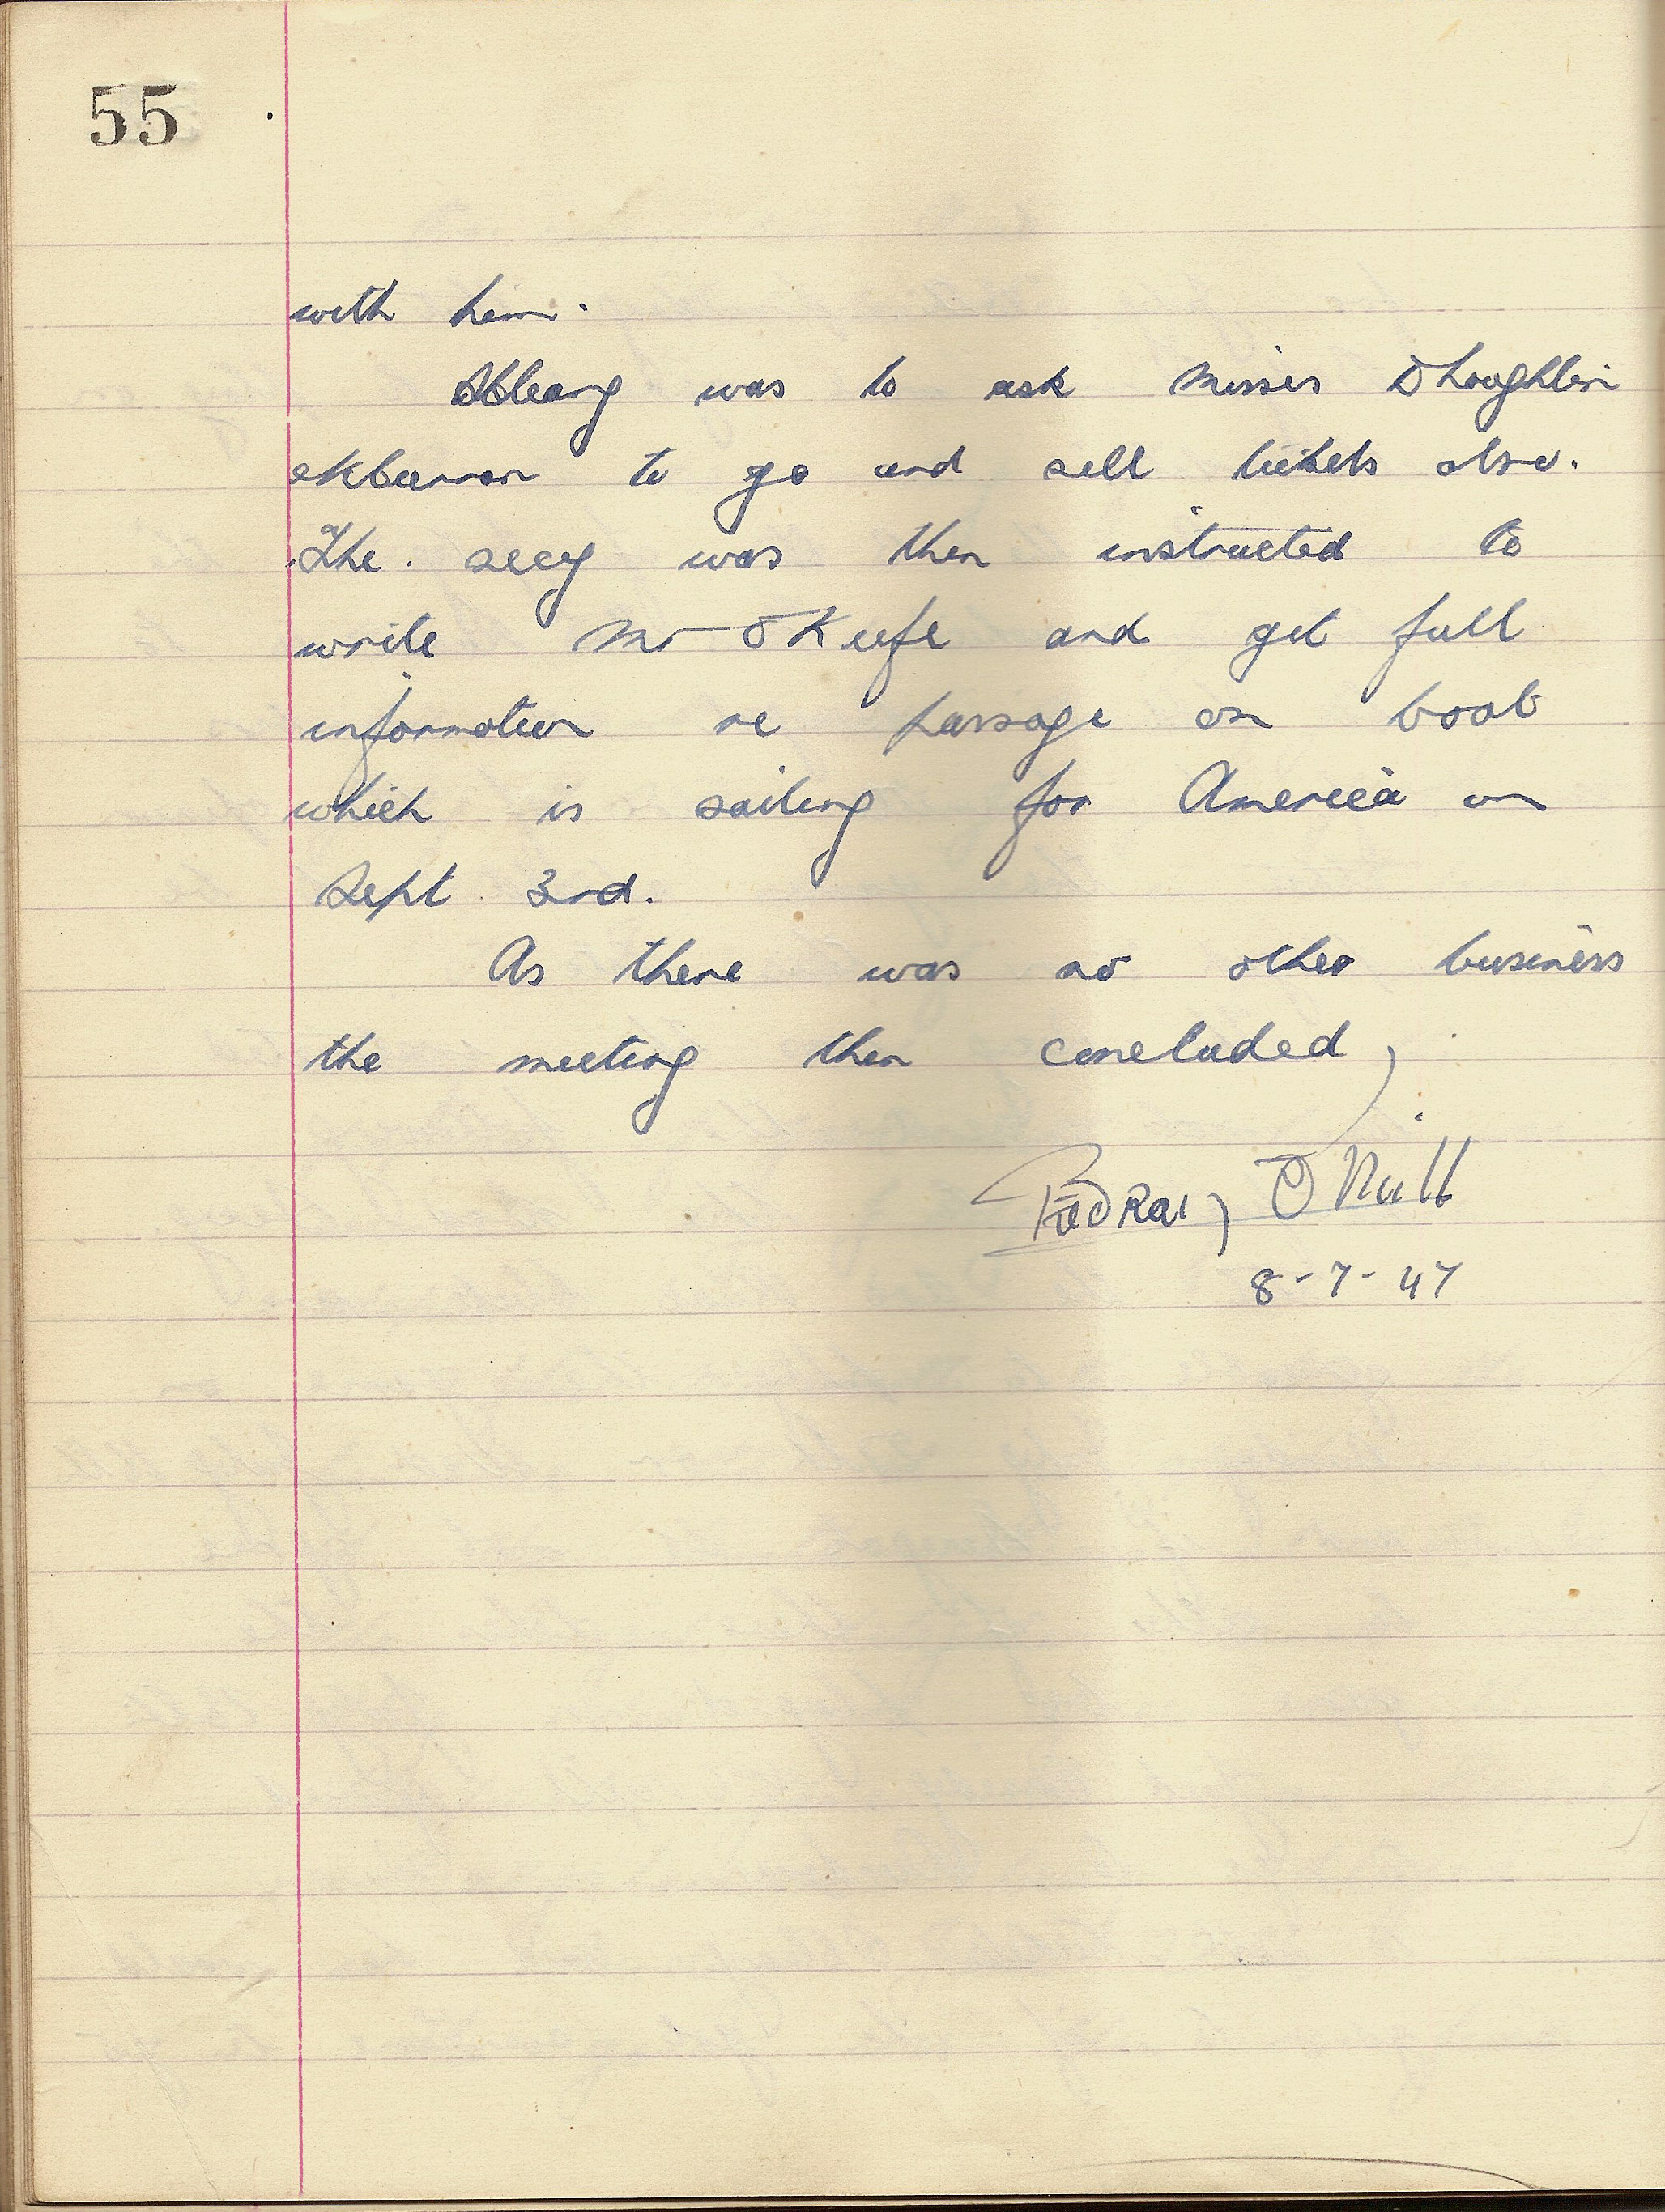 55
with him.
was to ask Misses O Loughlin
to go and sell tickets also.
The secy was then instructed to
write Mr O Keefe and get full
information re passage on boat
which is sailing for America on
Sept 3rd.
As there was no other business
the meeting then concluded,
Pádraig Ó Neill
8-7-47